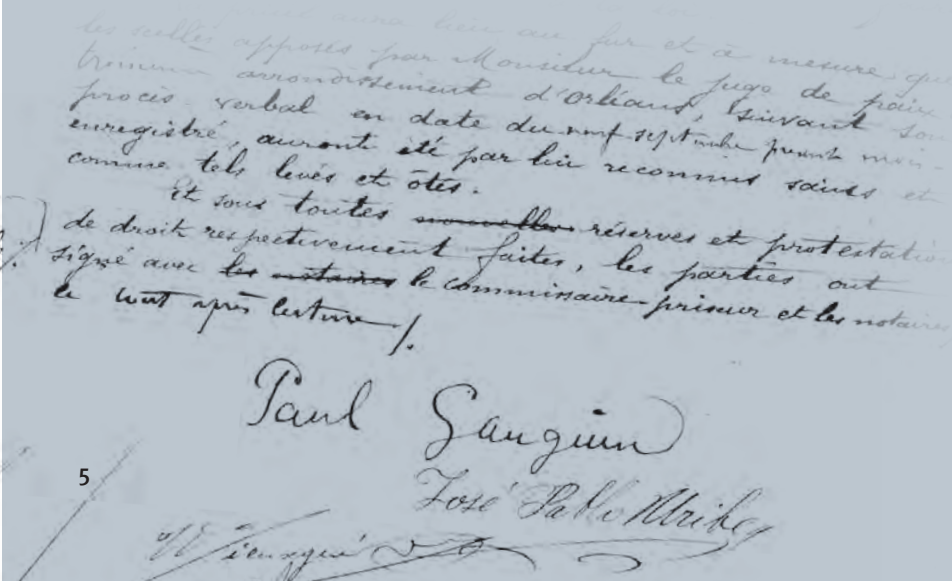 aura lieu au fur et à mesure que
les scellés apposés par Monsieur le juge de paix
arrondissement d'Orléans, suivant son
procès verbal en date du neuf septembre présent mois
enregistré, auront été par lui reconnus sains et
comme tels levés et ôtés.
Et sous toutes nouvelles réserves et protestations
de droit respectivement faites, les parties ont
signé avec les notaires le commissaire-priseur et les notaires
le tout après lecture /.
Paul Gauguin
José Pablo Uribe
5